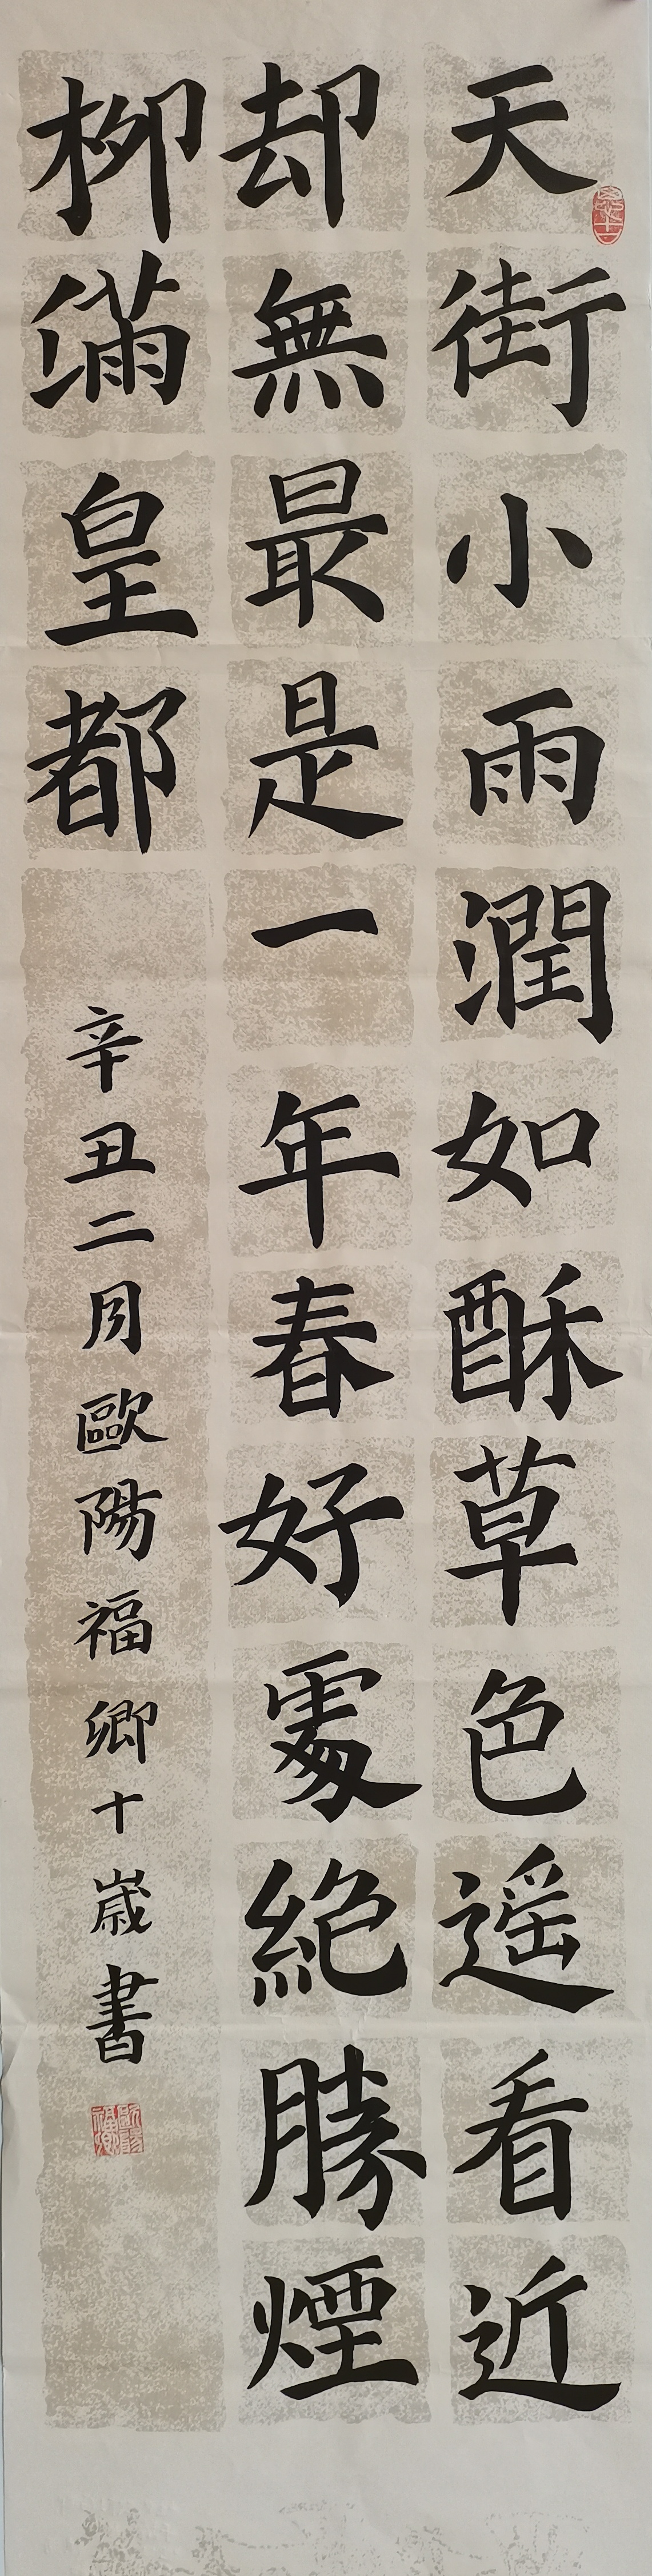 天街小雨潤如酥草色遥看近
却無最是一年春好處絶勝煙
柳满皇都
辛丑二月歐陽福卿十歲書